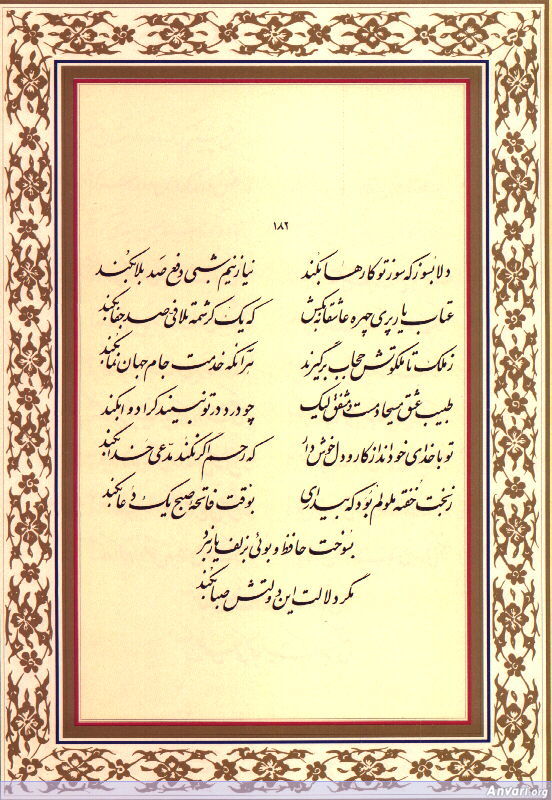 ۱۸۲
دلا بسوز که سوز تو کارها بکند نیاز نیم شبی دفع صد بلا بکند
عتاب یار پری چهره عاشقانه بکش که یک کرشمه تلافی صد جفا بکند
ز ملک تا ملکوتش حجاب برگیرند هر آنکه خدمت جام جهان نما بکند
طبیب عشق مسیحا دمست و مشفق لیک چو درد در تو نبیند کرا دوا بکند
تو با خدای خود انداز کار و دل خوش دار که رحم اگر نکند مدّعی خدا بکند
ز بخت خفته ملولم بود که بیداری بوقت فاتحهٔ صبح یک دعا بکند
بسوخت حافظ و بوئی بزلف یار نبرد
مگر دلالت این دولتش صبا بکند
Anvari.org